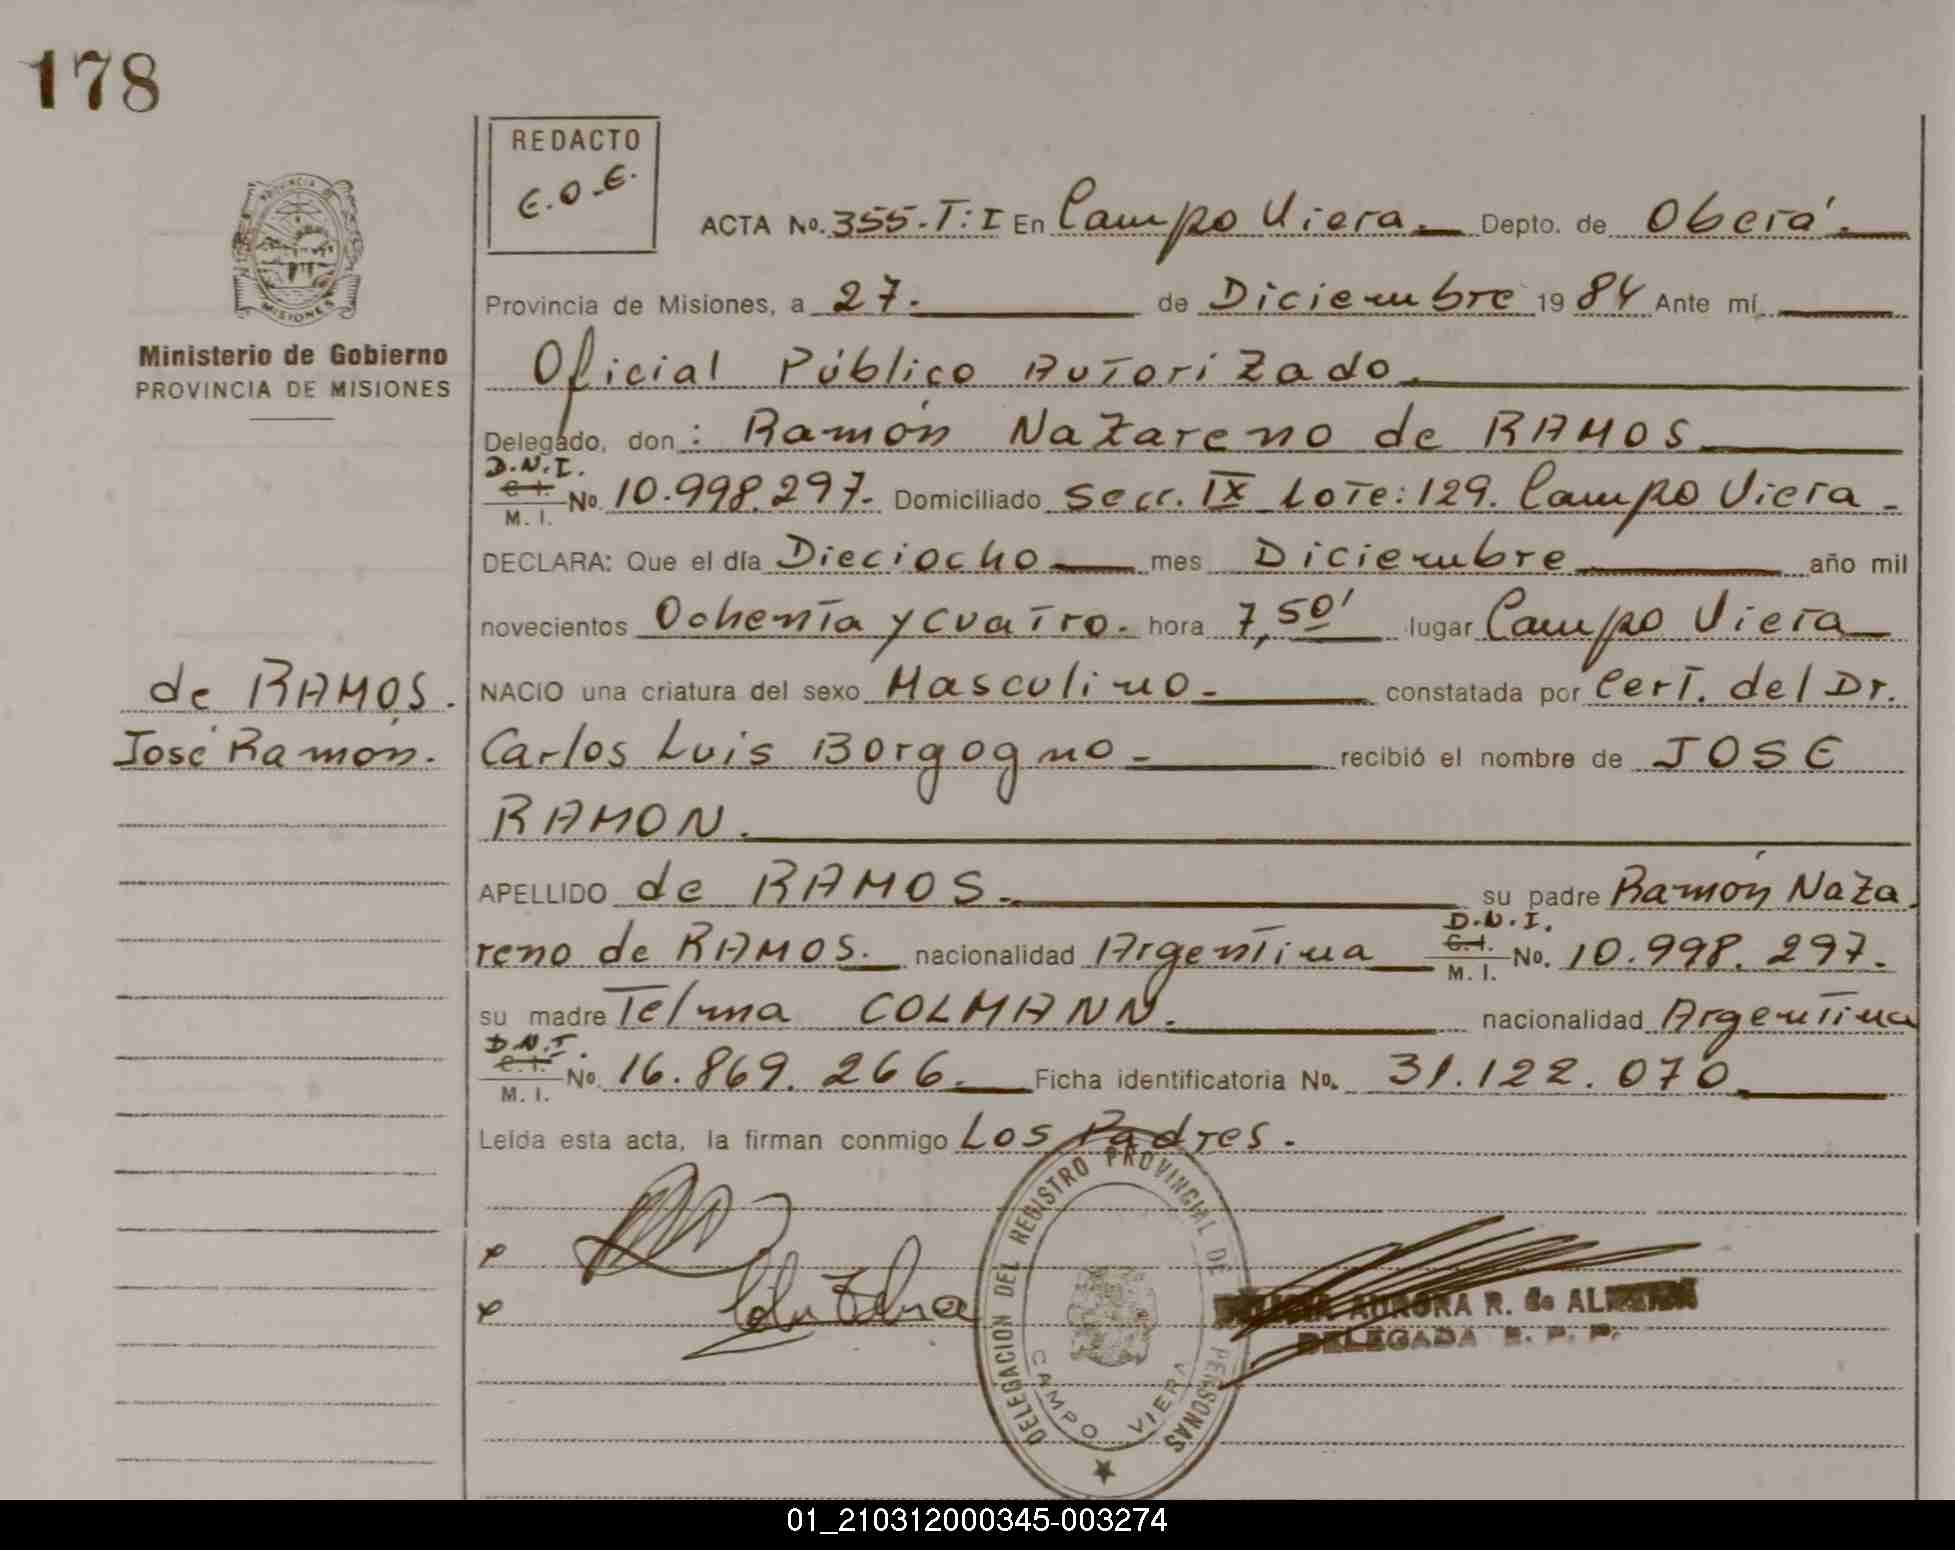 178
REDACTO
E.O.E.
ACTA No. 355-T:I En Campo Viera. Depto. de Oberá.
Provincia de Misiones, a 27. de Diciembre 19 84 Ante mí
Ministerio de Gobierno
PROVINCIA DE MISIONES
Oficial Público Autorizado.
Delegado, don: Ramón Nazareno de RAMOS
D.N.I.
C. I.
M. I. No. 10.998.297. Domiciliado Secc. IX Lote: 129. Campo Viera -
DECLARA: Que el día Dieciocho mes Diciembre año mil
novecientos Ochenta y cuatro. hora 7,50' lugar Campo Viera
de RAMOS.
José Ramón.
NACIO una criatura del sexo Masculino - constatada por Cert. del Dr.
Carlos Luis Borgogno - recibió el nombre de JOSE
RAMON.
APELLIDO de RAMOS. su padre Ramón Naza
reno de RAMOS. nacionalidad Argentina D.N.I. C. I. M. I. No. 10.998.297.
su madre Telma COLMANN. nacionalidad Argentina
D.N.I.
C. I.
M. I. No. 16.869.266. Ficha identificatoria No. 31.122.070
Leída esta acta, la firman conmigo Los Padres.
DELEGACION DEL REGISTRO PROVINCIAL DE PERSONAS
CAMPO VIERA
AURORA R. de
DELEGADA R. P. P.
01_210312000345-003274